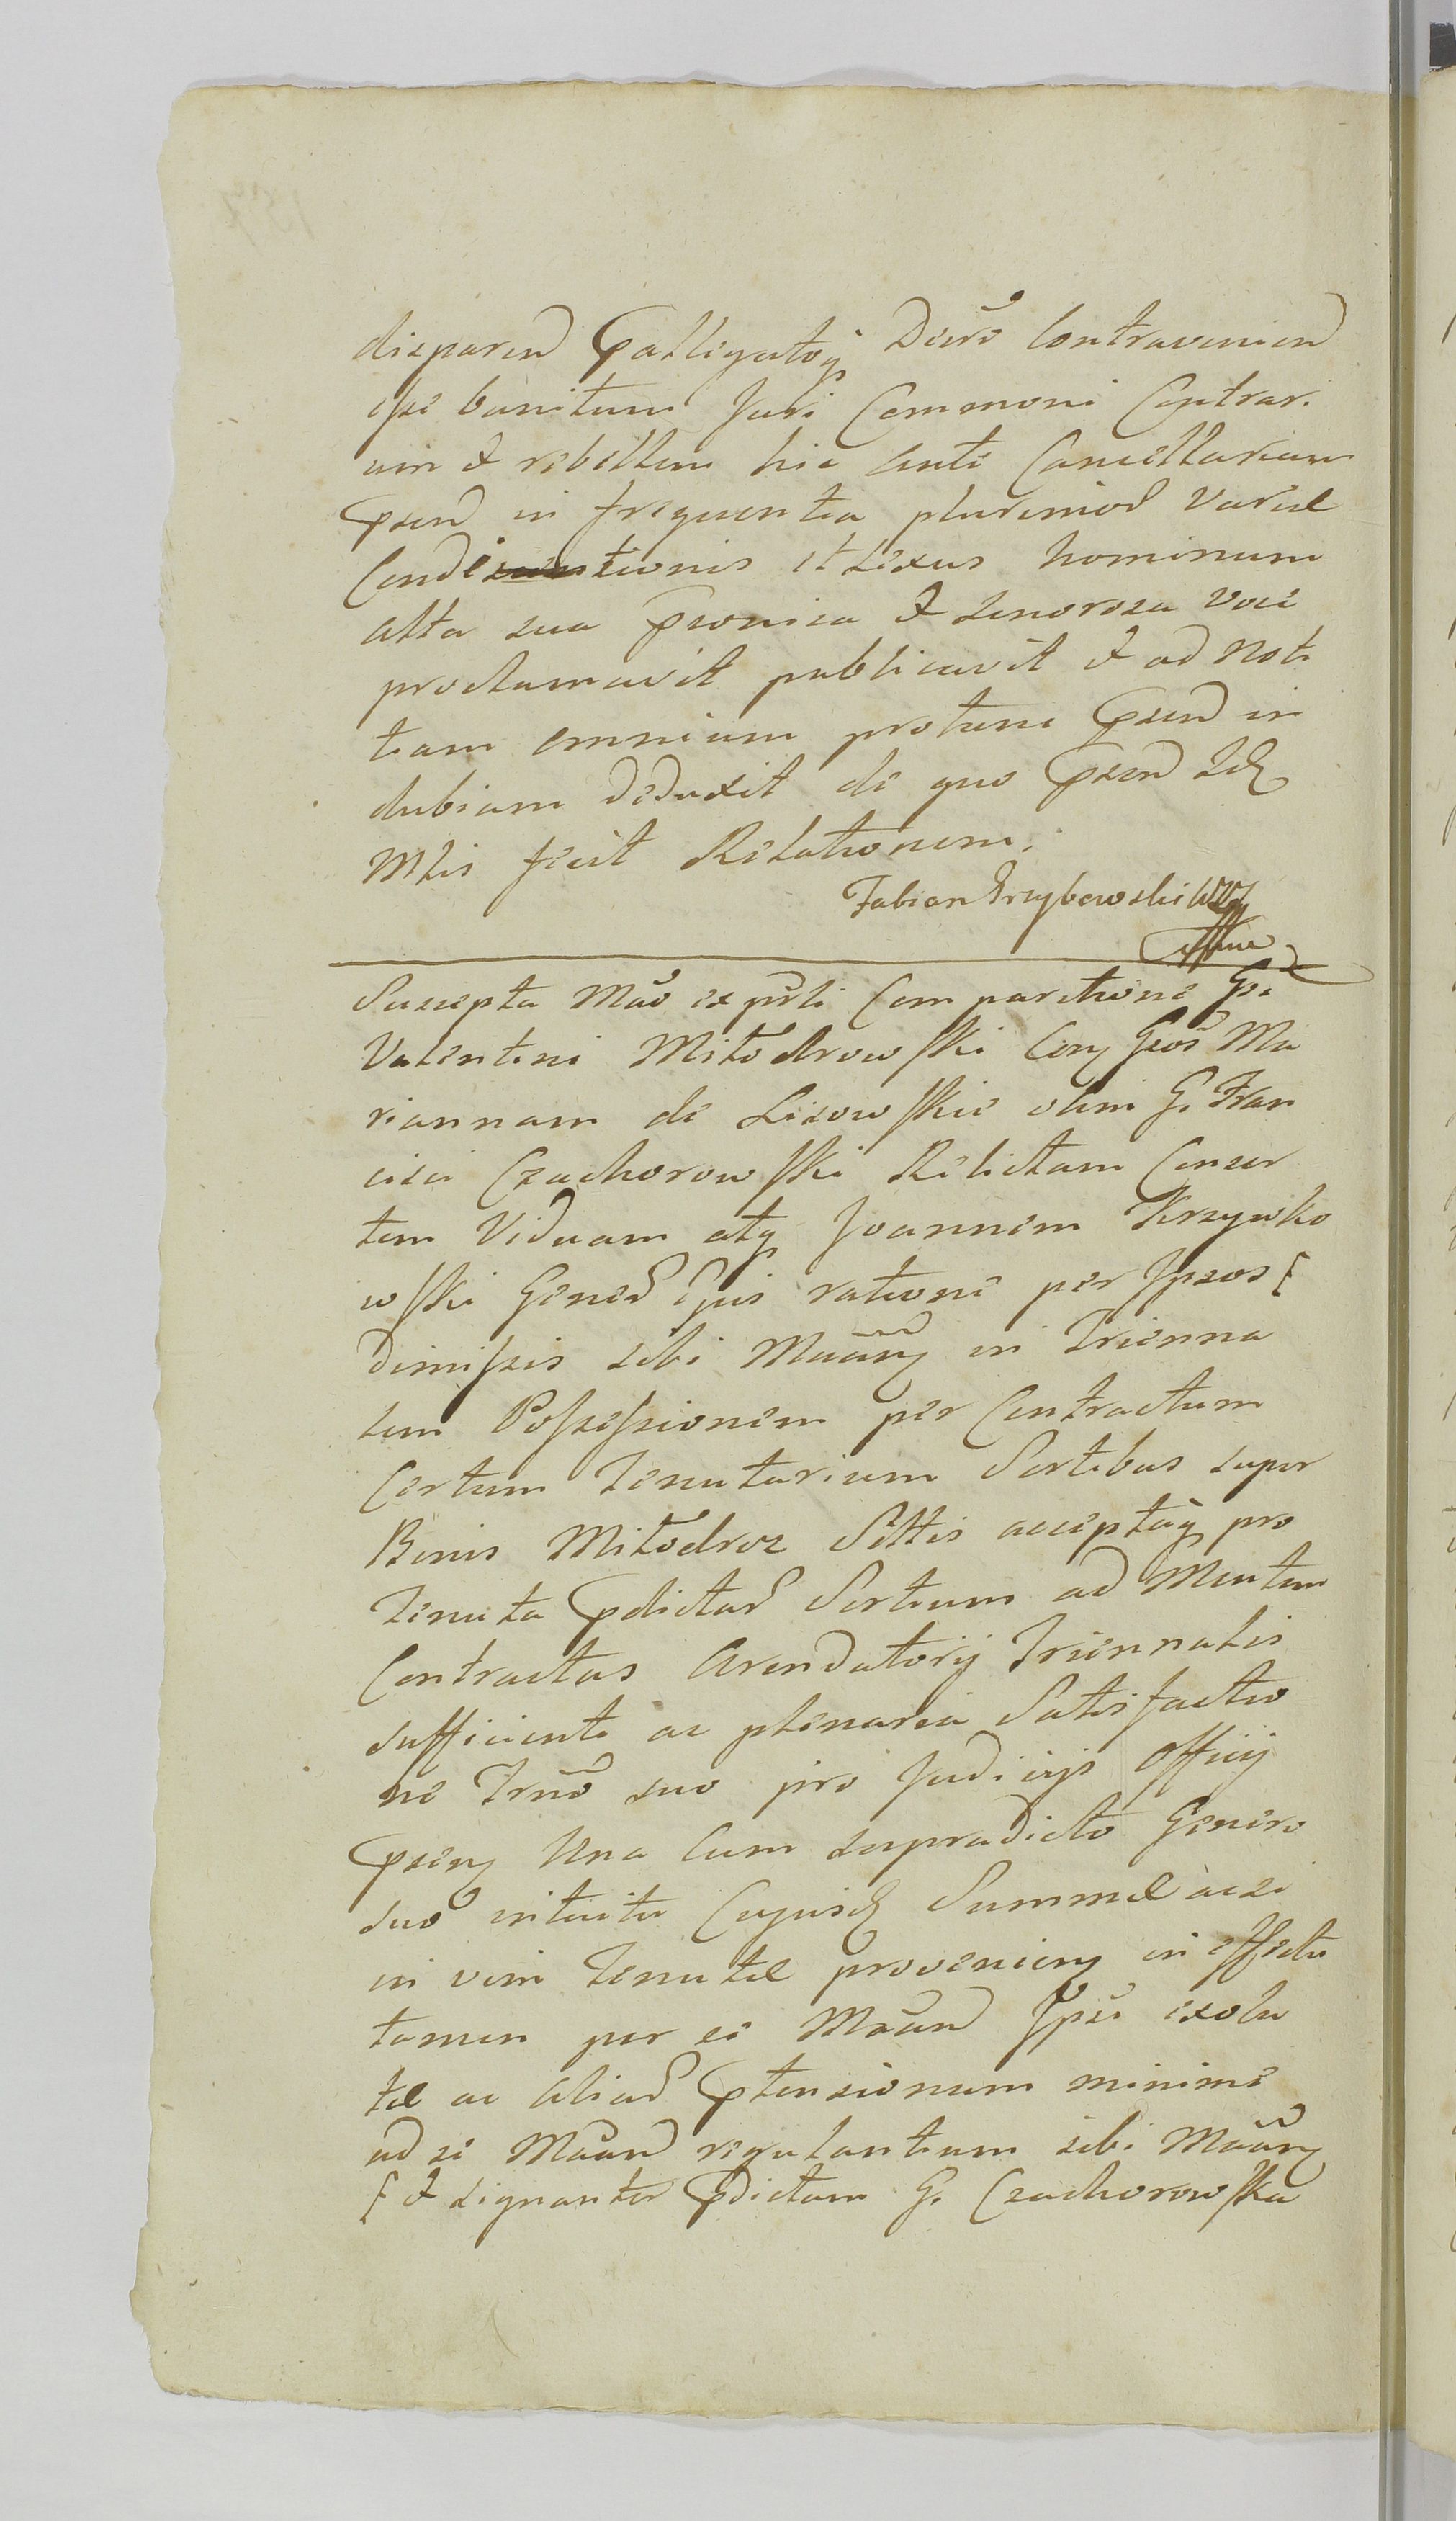 disparen Pallegatoq Decro Contravenien
esse banitum Juri Communi Contrari
um & rebellem hic ante Cancellariam
Psen in frequentia plurimor variæ
Condi tionis et sexus hominum
alta sua Psonica & senorosa voce
proclamavit publicavit & ad noti
tiam omnium protunc Psen in
dubiam deduxit de quo Psen
Mtis fecit Relationem.
Fabian Grzybowski
Suscepta Mão ex psli Comparitione G.
Valentini Miłodrowski Con Gsos Ma
riannam de Lisowskie olim G. Fran
cisci Czachorowski Relictam Consor
tem Viduam atq Joannem Krzywko
wski Gener Ejus ratione per Ipsos
dimissis sibi Mããn in Trienna
lem Possessionem per Contractum
Certum Tenutarium Sortibus super
Bonis Miłodroz Sittis acceptaq pro
Tenuta Pdictar Sortium ad Mentem
Contractus Arendatorij Triennalis
sufficiente ac plenaria Satisfactio
ne Trnõ suo pro Judicijs Officij
Psen Una Cum supradicto Genero
suo intuitu Cujus Summæ acsi
in vim Tenutæ provenien in effectu
tamen per se Mãan Ipsi exolu
tæ ac aliar Ptensionum minime
ad se Mãan regulantium sibi Mããn
[ & signanter Pdictam G. Czachorowska